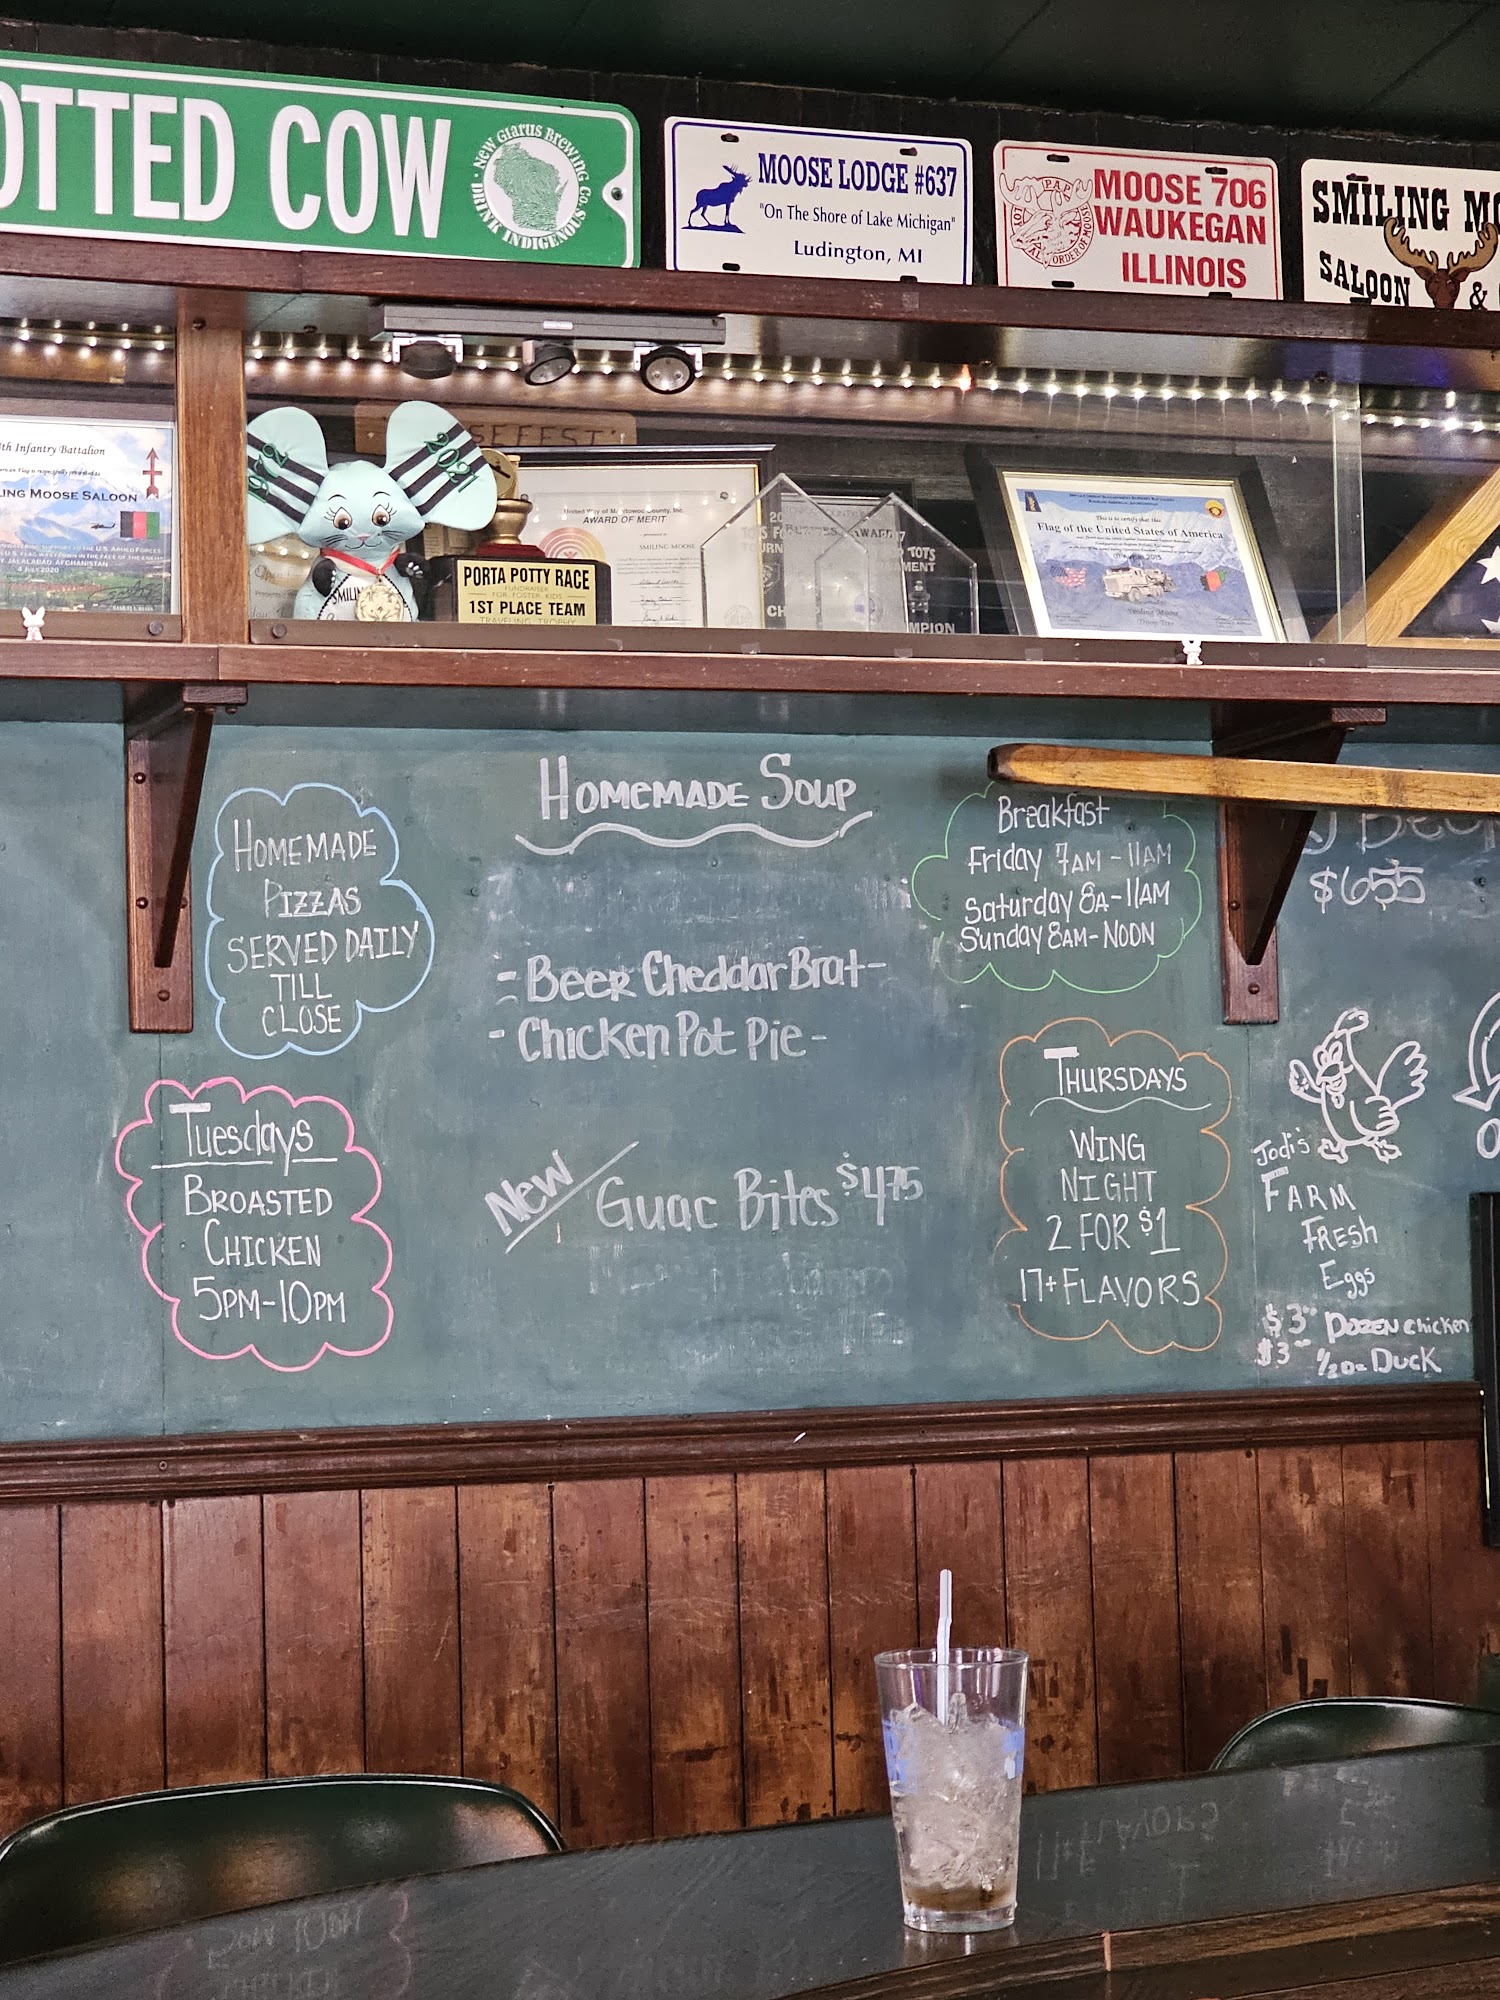 OTTED COW
NEW GLARUS BREWING CO.
DRINK INDIGENOUS
MOOSE LODGE #637
"On The Shore of Lake Michigan"
Ludington, MI
MOOSE 706
WAUKEGAN
ILLINOIS
PAP
LOYAL ORDER OF MOOSE
SMILING MO
SALOON &
th Infantry Battalion
ING MOOSE SALOON
JALALABAD, AFGHANISTAN
4 JULY 2020
2021
SEFEST
SMILIN
PORTA POTTY RACE
FUNDRAISER
FOR FOSTER KIDS
1ST PLACE TEAM
TRAVELING TROPHY
United Way of Manitowoc County, Inc.
AWARD OF MERIT
presented to
SMILING MOOSE
TOTS
MPION
This is to certify that the
Flag of the United States of America
Smiling Moose
HOMEMADE
PIZZAS
SERVED DAILY
TILL
CLOSE
Tuesdays
BROASTED
CHICKEN
5PM-10PM
HOMEMADE SOUP
-Beer Cheddar Brat-
-Chicken Pot Pie-
New Guac Bites $4.75
Breakfast
Friday 7AM-11AM
Saturday 8A-11AM
Sunday 8AM-NOON
THURSDAYS
WING
NIGHT
2 FOR $1
17+ FLAVORS
$655
Jodi's
FARM
FResh
Eggs
$3 DOZEN chicken
$3 1/2 Doz Duck